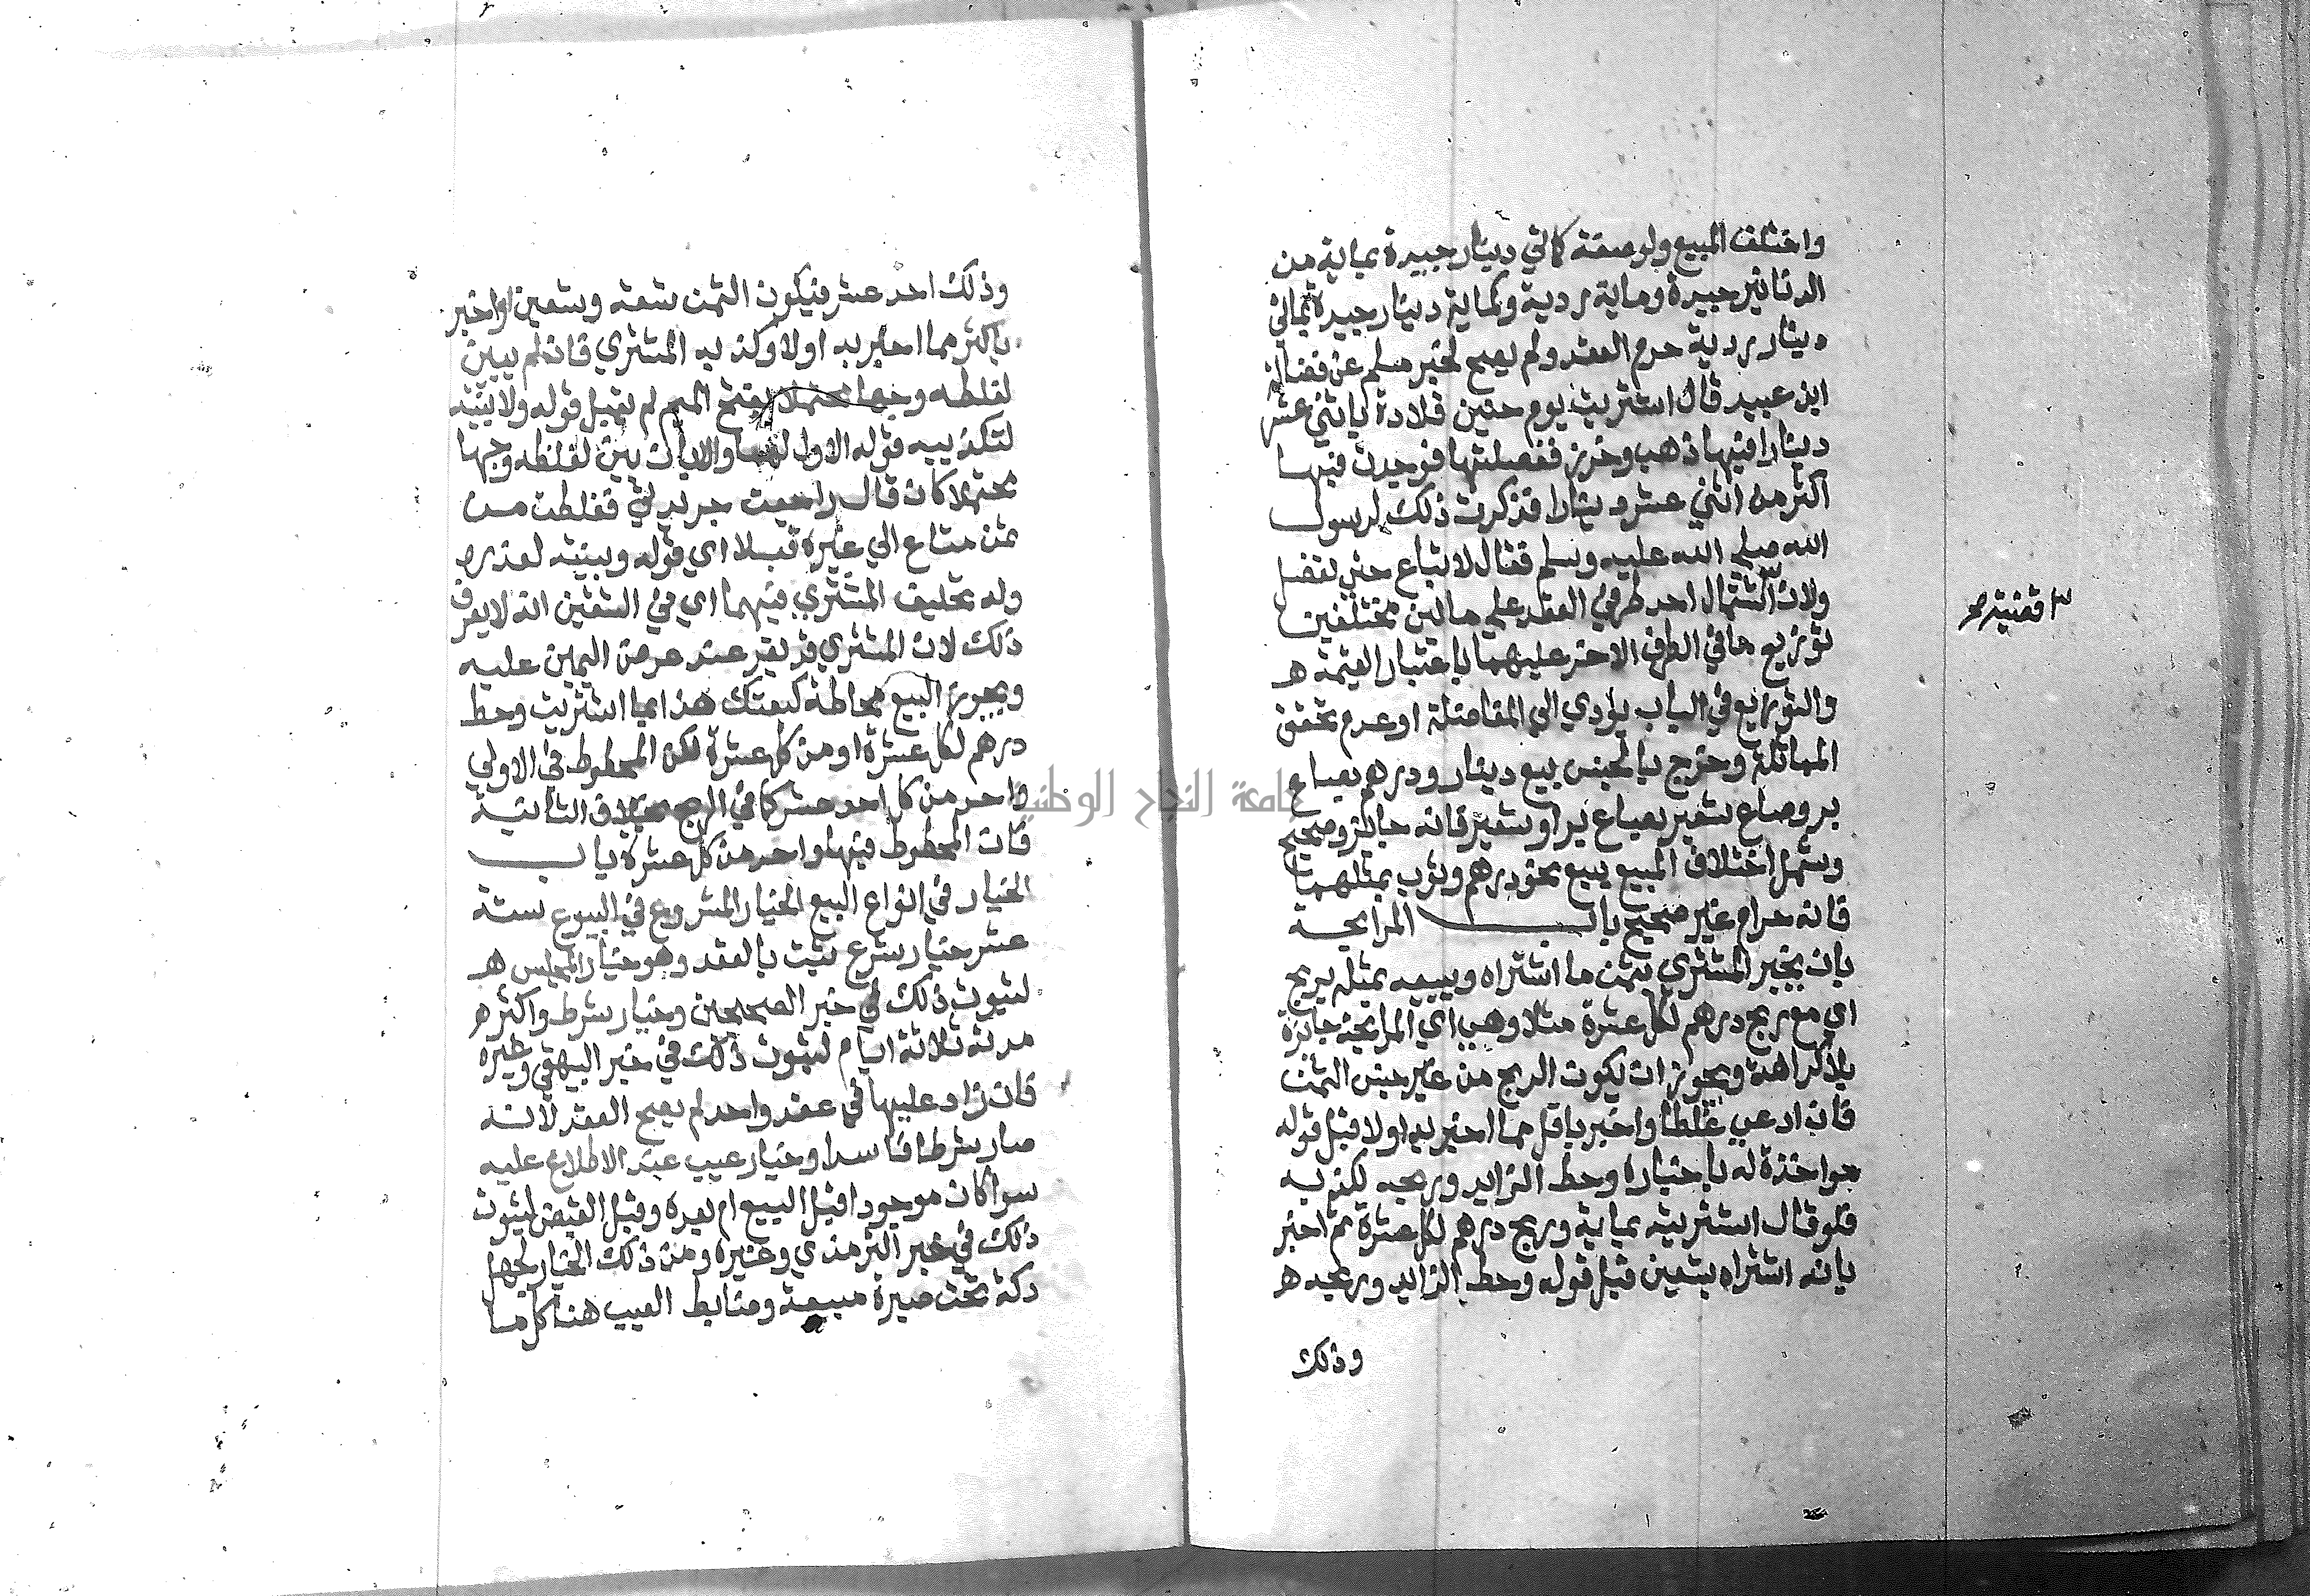 واختلف المبيع ولو صفة كمائتي دينار جيدة بماية من
الدنانير جيدة وماية ردية وكماية دينار جيدة بمائتي
دينار ردية حرم العقد ولم يصح لخبر مسلم عن فضالة
ابن عبيد قال اشتريت يوم حنين قلادة باثني عشر
دينارا فيها ذهب وخرز ففصلتها فوجدت فيها
اكثر من اثني عشر دينارا فذكرت ذلك لرسول
الله صلى الله عليه وسلم فقال لا تباع حتي تفصل
ولان اشتمال احد طرفي العقد علي مالين مختلفين
توزيع ما في الطرف الاخر عليهما باعتبار القيمة هـ
والتوزيع في الباب يؤدي الي المفاضلة او عدم تحقق
المماثلة وخرج بالجنس بيع دينار ودرهم بصاع
بر وصاع شعير بصاع بر او شعير فانه جايز وصحيح
وشمل اختلاف المبيع بيع نحو درهم وثوب بمثلهما
فانه حرام غير صحيح باب المرابحة
بان يخبر المشتري بثمن ما اشتراه ويبيعه بمثله بربح
اي مع ربح درهم لكل عشرة مثلا وهي اي المرابحة جايزة
بلا كراهة ويجوز ان يكون الربح من غير جنس الثمن
فان ادعي غلطا واخبر باقل مما اخبر به اولا قبل قوله
مواخذة له باخباره وحط الزايد وربحه لكذبه
فلو قال اشتريته بماية وربح درهم لكل عشرة ثم اخبر
بانه اشتراه بتسعين قبل قوله وحط الزايد وربحه هـ
وذلك
قضيته صح
وذلك احد عشر فيكون الثمن تسعة وتسعين او اخبر
باكثر مما اخبر به اولا وكذبه المشتري فان لم يبين
لغلطه وجها محتملا بفتح الميم لم يقبل قوله ولا بينته
لتكذيبه قوله الاول لهما والا بان بين لغلطه وجها
محتملا كان قال راجعت جريدتي فغلطت من
ثمن متاع الي غيره قبلا اي قوله وبينته لعذره
وله تحليف المشتري فيهما اي في الشقين انه لا يعرف
ذلك لان المشتري قد يقر عند عرض اليمين عليه
ويجوز البيع محاطة كبعتك هذا بما اشتريت وحط
درهم لكل عشرة او من كل عشرة لكن المحطوط في الاولي
واحد من كل احد عشر كما في الربح بخلاف الثانية
فان المحطوط فيها واحد من كل عشرة باب
الخيار في انواع البيع الخيار المشروع في البيوع ستة
عشر خيار شرع ثبت بالعقد وهو خيار المجلس هـ
لثبوت ذلك في خبر الصحيحين وخيار شرط واكثر هـ
مدته ثلاثة ايام لثبوت ذلك في خبر البيهقي وغيره
فان زاد عليها في عقد واحد لم يصح العقد لانه
صار شرطا فاسدا وخيار عيب عند الاطلاع عليه
سوا كان موجودا قبل البيع ام بعده وقبل القبض لثبوت
ذلك في خبر الترمذي وغيره ومن ذلك الخيار لجهل
دكة تحت صبرة مبيعة وضابط العيب هنا كل ما
جامعة النجاح الوطنية